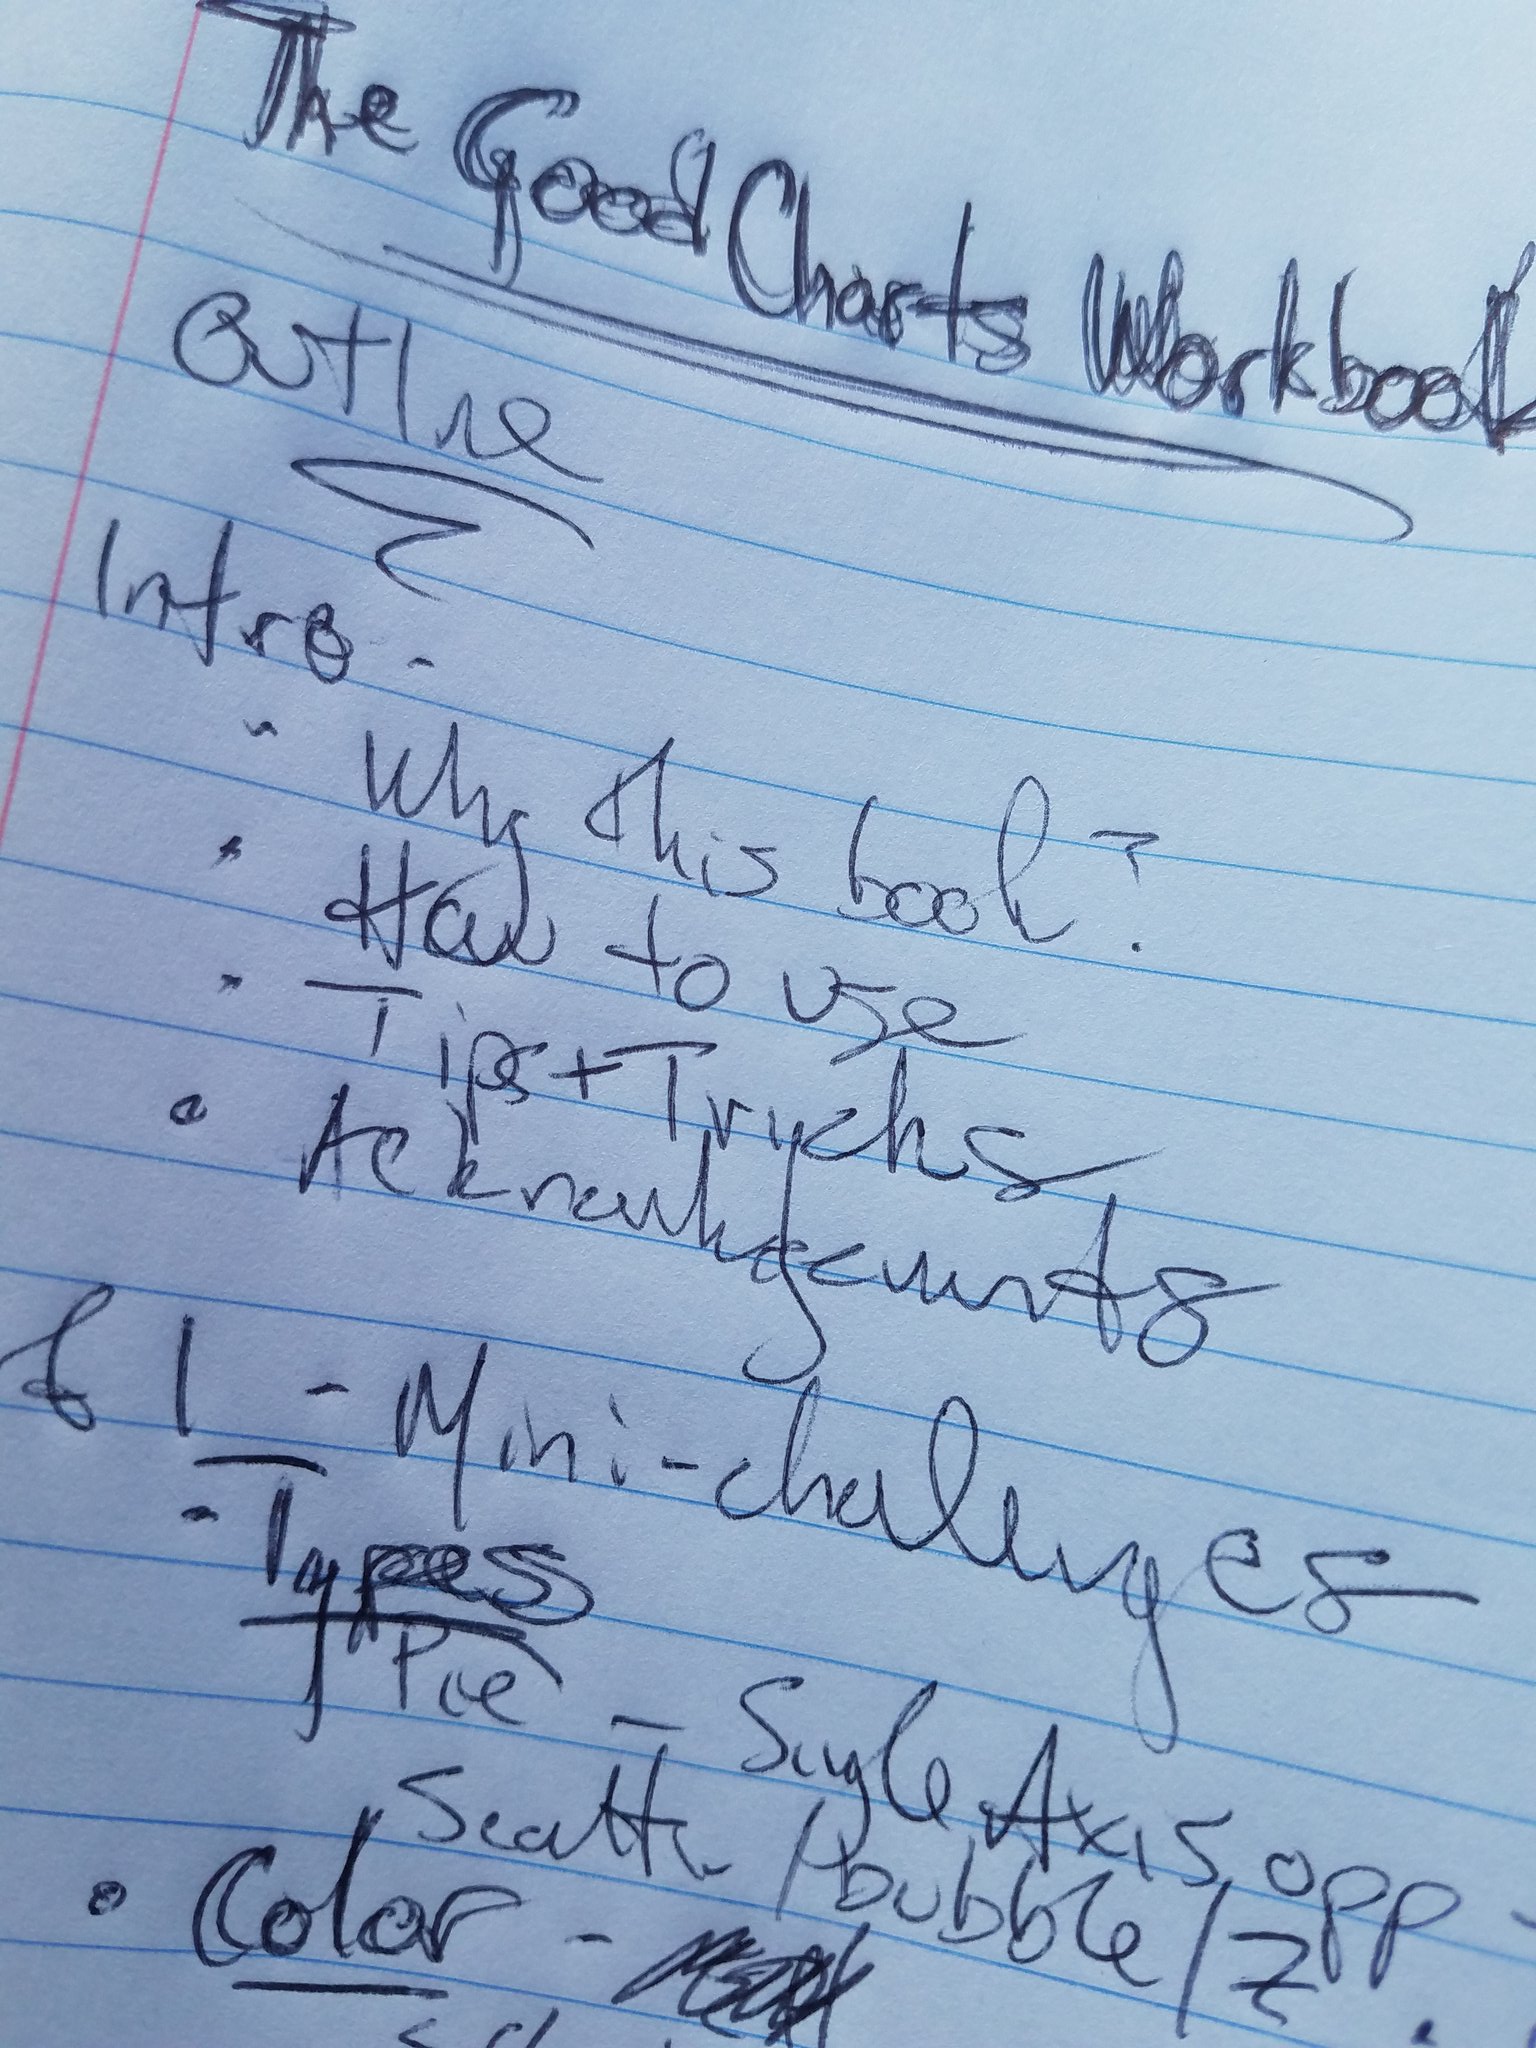 The Good Charts Workbook
Outline
Intro -
Why this book?
How to use
Tips + Tricks
Acknowledgements
1 - Mini-challenges
Types
Pie - Single Axis opp
Scatter / bubble / Z
Color -